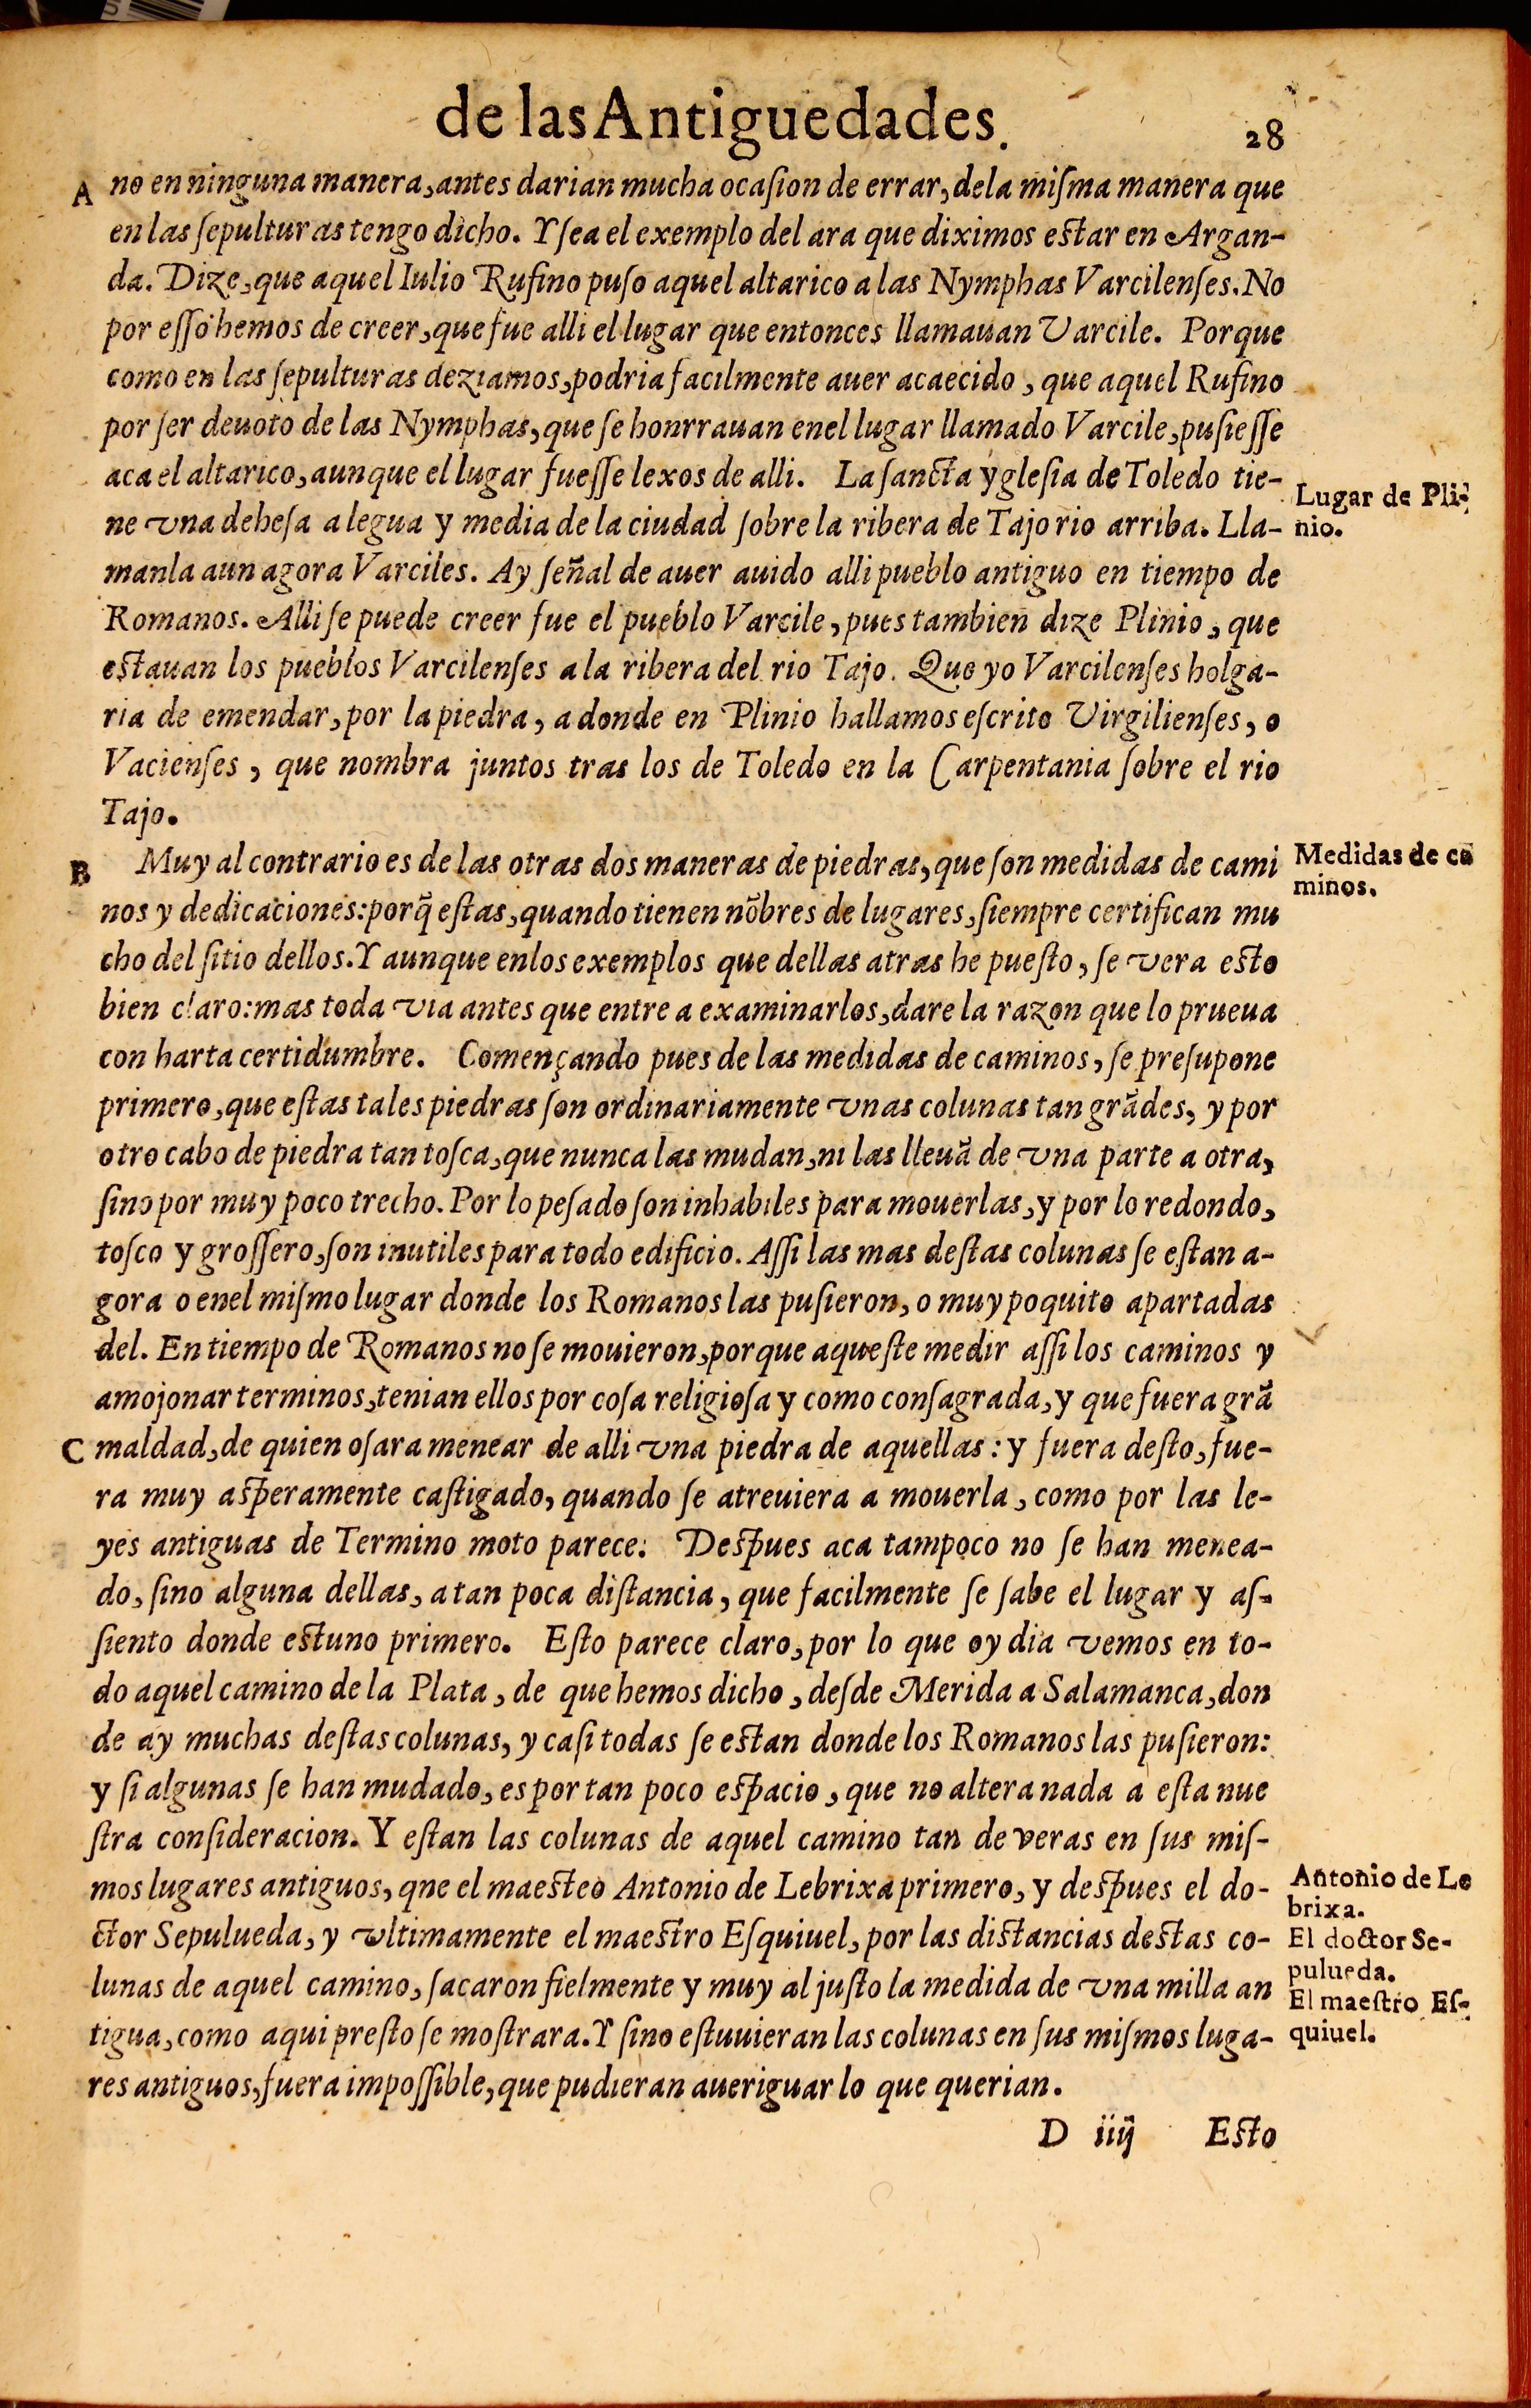 de las Antiguedades.
28
A no en ninguna manera, antes darian mucha ocaſion de errar, dela miſma manera que
en las ſepulturas tengo dicho. Y ſea el exemplo del ara que diximos eſtar en Argan-
da. Dize, que aquel Iulio Rufino puſo aquel altarico a las Nymphas Varcilenſes. No
por eſſo hemos de creer, que fue alli el lugar que entonces llamauan Varcile. Porque
como en las ſepulturas deziamos, podria facilmente auer acaecido, que aquel Rufino
por ſer deuoto de las Nymphas, que ſe honrrauan enel lugar llamado Varcile, puſieſſe
aca el altarico, aunque el lugar fueſſe lexos de alli. La ſancta ygleſia de Toledo tie-
Lugar de Pli-
ne vna deheſa a legua y media de la ciudad ſobre la ribera de Tajo rio arriba. Lla-
nio.
manla aun agora Varciles. Ay ſeñal de auer auido alli pueblo antiguo en tiempo de
Romanos. Alli ſe puede creer fue el pueblo Varcile, pues tambien dize Plinio, que
eſtauan los pueblos Varcilenſes a la ribera del rio Tajo. Que yo Varcilenſes holga-
ria de emendar, por la piedra, a donde en Plinio hallamos eſcrito Virgilienſes, o
Vacienſes, que nombra juntos tras los de Toledo en la Carpentania ſobre el rio
Tajo.
B Muy al contrario es de las otras dos maneras de piedras, que ſon medidas de cami
Medidas de ca
nos y dedicaciones: porq̃ eſtas, quando tienen nõbres de lugares, ſiempre certifican mu
minos.
cho del ſitio dellos. Y aunque enlos exemplos que dellas atras he pueſto, ſe vera eſto
bien claro: mas toda via antes que entre a examinarlos, dare la razon que lo prueua
con harta certidumbre. Començando pues de las medidas de caminos, ſe preſupone
primero, que eſtas tales piedras ſon ordinariamente vnas colunas tan grãdes, y por
otro cabo de piedra tan toſca, que nunca las mudan, ni las lleuã de vna parte a otra,
ſino por muy poco trecho. Por lo peſado ſon inhabiles para mouerlas, y por lo redondo,
toſco y groſſero, ſon inutiles para todo edificio. Aſſi las mas deſtas colunas ſe eſtan a-
gora o enel miſmo lugar donde los Romanos las puſieron, o muy poquito apartadas
del. En tiempo de Romanos no ſe mouieron, porque aqueſte medir aſſi los caminos y
amojonar terminos, tenian ellos por coſa religioſa y como conſagrada, y que fuera grã
C maldad, de quien oſara menear de alli vna piedra de aquellas: y fuera deſto, fue-
ra muy aſperamente caſtigado, quando ſe atreuiera a mouerla, como por las le-
yes antiguas de Termino moto parece. Deſpues aca tampoco no ſe han menea-
do, ſino alguna dellas, a tan poca diſtancia, que facilmente ſe ſabe el lugar y aſ-
ſiento donde eſtuno primero. Eſto parece claro, por lo que oy dia vemos en to-
do aquel camino de la Plata, de que hemos dicho, deſde Merida a Salamanca, don
de ay muchas deſtas colunas, y caſi todas ſe eſtan donde los Romanos las puſieron:
y ſi algunas ſe han mudado, es por tan poco eſpacio, que no altera nada a eſta nue
ſtra conſideracion. Y eſtan las colunas de aquel camino tan de veras en ſus miſ-
mos lugares antiguos, qne el maeſteo Antonio de Lebrixa primero, y deſpues el do-
Antonio de Le
brixa.
ctor Sepulueda, y vltimamente el maeſtro Eſquiuel, por las diſtancias deſtas co-
El doctor Se-
lunas de aquel camino, ſacaron fielmente y muy al juſto la medida de vna milla an
pulueda.
El maeſtro Eſ-
tigua, como aqui preſto ſe moſtrara. Y ſino eſtuuieran las colunas en ſus miſmos luga-
quiuel.
res antiguos, fuera impoſſible, que pudieran aueriguar lo que querian.
D iiij Eſto